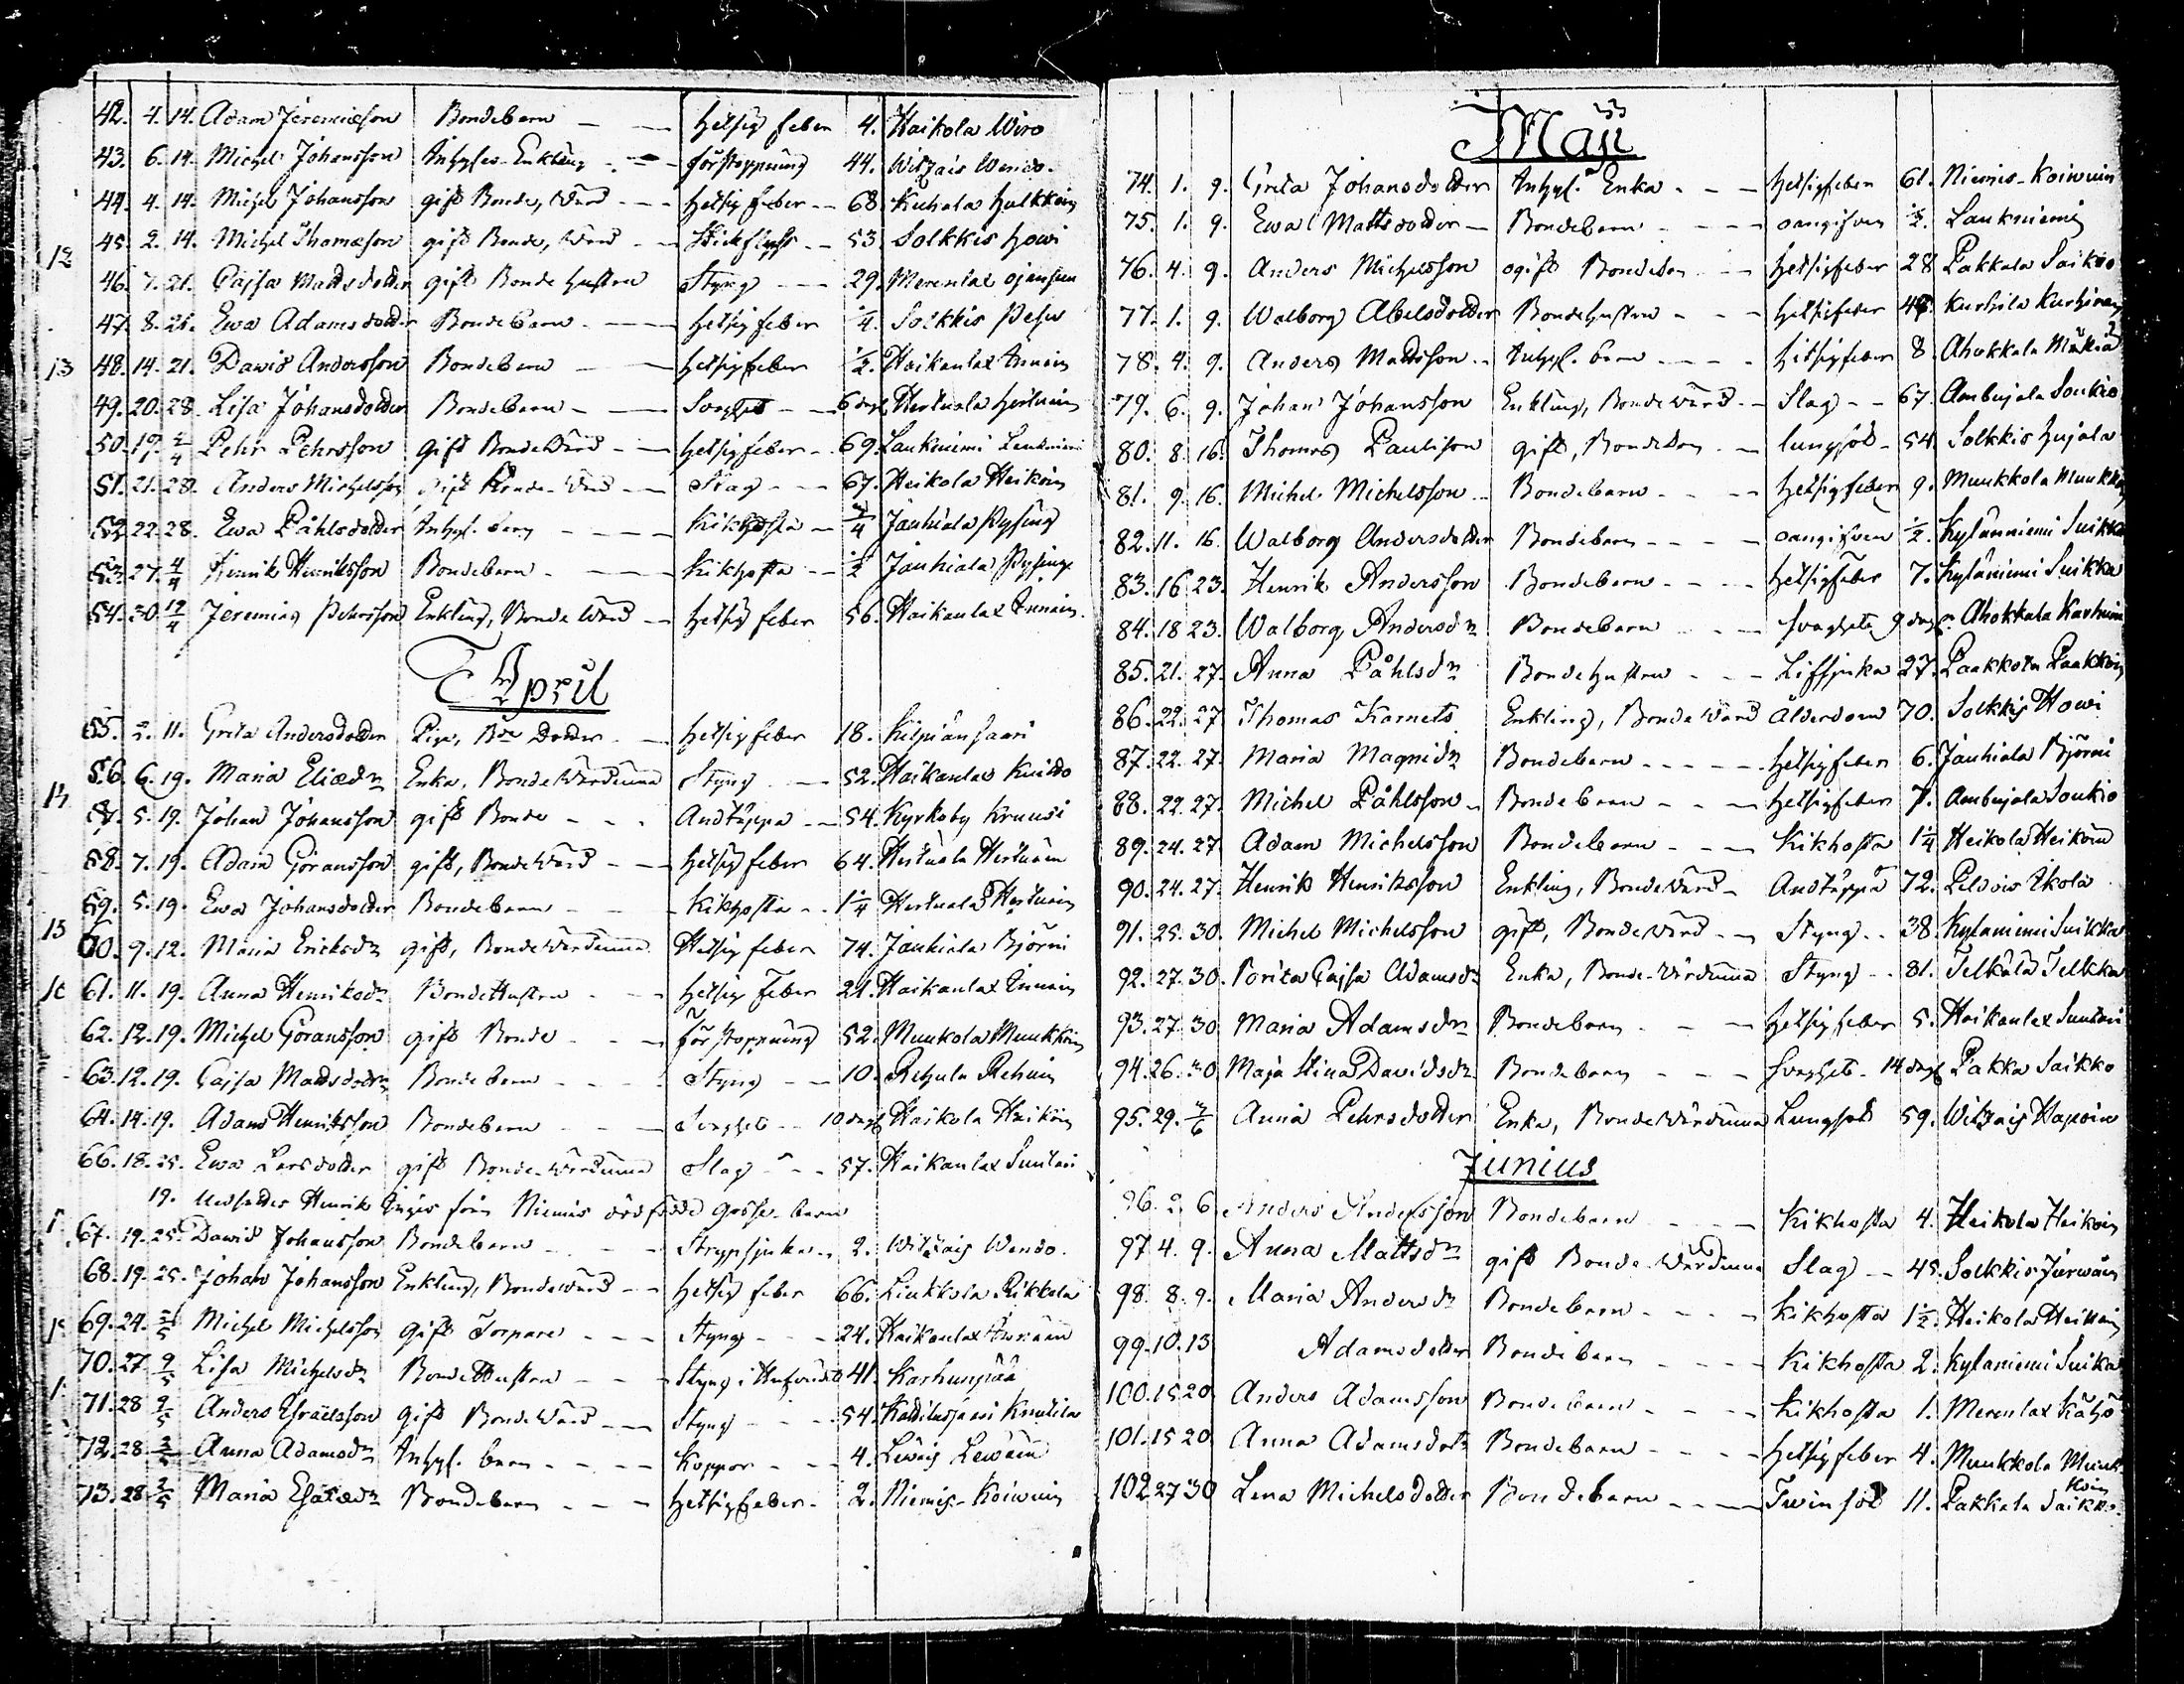 42. 4. 14. Adam Jeremiæson Bondebarn hetsig feber 4. Haikola Wiro
43. 6. 14. Michel Johansson Inhyses Enkling förstoppning 44. Witzais Wendo.
44. 4. 14. Michel Johansson gift Bonde, Wärd hetsig feber 68 Kuhala Hulkkoin
12
45. 2. 14. Michel Thomæson gift Bonde, Wärd 53 Solkkis Howi
46. 7. 21. Cajsa Mattsdotter gift Bonde hustru Styng 29. Merenlax
47. 8. 21. Ewa Adamsdotter Bondebarn hetsig feber 1/4. Solkkis Pesu
13
48. 14. 21. Dawid Andersson Bondebarn hetsig feber 1/2. Haikanlax Innain
49. 20. 28. Lisa Johansdotter Bondebarn Svaghet 6 dag. Hertuala Hertuain
50. 19. 2/4 Pehr Pehrsson gift BondeWärd hetsig feber 69. Laukniemi
51. 21. 28. Anders Michelsson gift Bonde-Wärd Slag 67. Heikola Heikoin
52. 22. 28. Ewa Påhlsdotter Inhys. barn Kikhosta 3/4 Jauhiala Pysing
53. 27. 4/4 Henrik Henriksson Bondebarn Kikhosta 1/2 Jauhiala Pysing
54. 30. 12/4 Jeremias Pehrsson Enkling, Bonde Wärd hetsig feber 56. Haikanlax Innain.
April
55. 2. 11. Greta Andersdotter Piga, Bde Dotter hetsig feber 18. Kilpiänsaari
56. 6. 19. Maria Eliædr Enka, BondeWärdinna Styng 52. Haikanlax
14
57. 5. 19. Johan Johansson gift Bonde Andtäppa 54. Kyrkoby Kruusi
58. 7. 19. Adam Göransson gift, BondeWärd hetsig feber 64. Hertuala Hertuain
59. 5. 19. Ewa Johansdotter Bondebarn Kikhosta 1 1/4 Hertuala Hertuain
15
60. 9. 12. Maria Ericksdr gift, BondeWärdinna Hetsig feber 74. Jauhiala Björni
16
61. 11. 19. Anna Henriksdr BondeHustru hetsig feber 21. Haikanlax Innain
62. 12. 19. Michel Göransson gift Bonde förstoppning 52. Muukola Muukkoin
63. 12. 19. Cajsa Mattsdotr Bondebarn Styng 10. Rehula Rehuin
64. 14. 19. Adam Henriksson Bondebarn Svaghet 10 dag. Haikola Haikoin
66. 18. 25. Ewa Larsdotter gift Bonde-Wärdinna Slag 57. Haikanlax Suutari
19. Henrik från Niemis dödfödde gosse-barn
67. 19. 25. Dawid Johansson Bondebarn Strypsjuka 2. Witzais Wendo.
68. 19. 25. Johan Johansson Enkling, Bondewärd hetsig feber 66. Liukkola Rikkola
69. 24. Michel Michelsson gift Torpare Styng 24. Haikanlax Innain
70. 27. 9/5 Lisa Michelsdr BondeHustru Styng i Hufvudet 41. Karhunpää
71. 28 9/5 Anders Esraelsson gift BondeWärd Styng 54.
72. 28. 2/5 Anna Adamsdr Inhys. barn Koppor 4. Lewäis Lewäin
73. 28. 2/5 Maria Bondebarn hetsig feber 2. Niemis-Koiwuin
33
Maii
74. 1. 9. Greta Johansdotter Inhys. Enka hetsigfeber 61. Niemis-Koiwuin
75. 1. 9. Ewa Mattsdotter Bondebarn oangifven 1/2. Laukniemi
76. 4. 9. Anders Michelsson ogift Bondeson hetsigfeber 28 Pakkala Saikko
77. 1. 9. Walborg Abelsdotter BondeHustru hetsigfeber 46. Kurhila Kurhinen
78. 4. 9. Anders Mattsson Inhys. barn hetsigfeber 8 Ahokkala Mäkiä
79. 6. 9. Johan Johansson Enkling, Bondewärd Slag 67. Ambujala Soukio
80. 8. 16. Thomas Paulisson gift, Bondeson lungsot 54. Solkkis Hujala
81. 9. 16. Michel Michelsson Bondebarn hetsigfeber 9. Muukkola Muukkoin
82. 11. 16. Walborg Andersdotter Bondebarn oangifven 1/2. Kylänniemi Suikka
83. 16 23. Henrik Andersson Bondebarn hetsigfeber 7. Kyläniemi Suikka
84. 18 23. Walborg Andersdr Bondebarn svaghet 9 dag. Ahokkala Karhuin
85. 21. 27. Anna Påhlsdr BondeHustru Lifsjuka 27. Paakkola Paakkoin
86. 22. 27 Thomas Karnets Enkling, BondeWärd ålderdom 70. Solkkis Howi
87. 22. 27. Maria Magnidr Bondebarn hetsigfeber 6. Jauhiala Björni
88. 22. 27. Michel Påhlsson Bondebarn hetsigfeber 7. Ambujala Soukio
89. 24. 27. Adam Michelsson Bondebarn Kikhosta 1 1/4 Heikola Heikoin
90. 24. 27. Henrik Henriksson Enkling, BondeWärd Andtäppa 72. Peldois Ikola
91. 25. 30. Michel Michelsson gift, BondeWärd Styng 38. Kylaniemi Suikka
92. 27. 30. Brita Cajsa Adamsdr Enka, Bonde-Wärdinna Styng 81. Telkälä Telkka
93. 27. 30 Maria Adamsdr Bondebarn hetsigfeber 5. Haikanlax Suutari
94. 26. 30 Maja Stina Davidsdr Bondebarn svaghet 14 dag. Pakka Saikko
95. 29. 3/6 Anna Pehrsdotter Enka, BondeWärdinna Lungsot 59. Witzais Hapoin
Junius
96. 2. 6 Anders Andersson Bondebarn Kikhosta 4. Heikola Heikoin
97 4. 9. Anna Mattsdr gift Bonde-Wärdinna Slag 45. Solkkis Järwäin
98. 8. 9. Maria Andersdr Bondebarn Kikhosta 1 1/2. Heikola Heikoin
99. 10. 13 Adamsdotter Bondebarn Kikhosta 2. Kylaniemi Suika
100. 15 20 Anders Adamsson Bondebarn Kikhosta 1. Merenlax Kähö
101. 15 20 Anna Adamsdotr Bondebarn hetsigfeber 4. Muukkola Muukkoin
102 27 30 Lena Michelsdotter Bondebarn Twinsot 11. Pakkala Saikko.